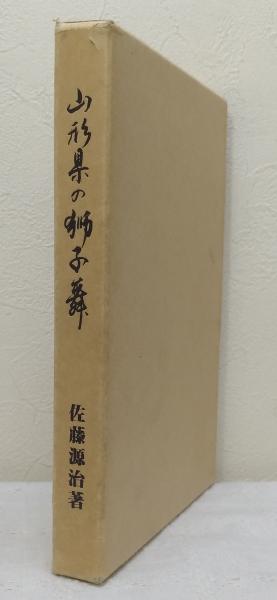 山形県の獅子舞
佐藤源治著